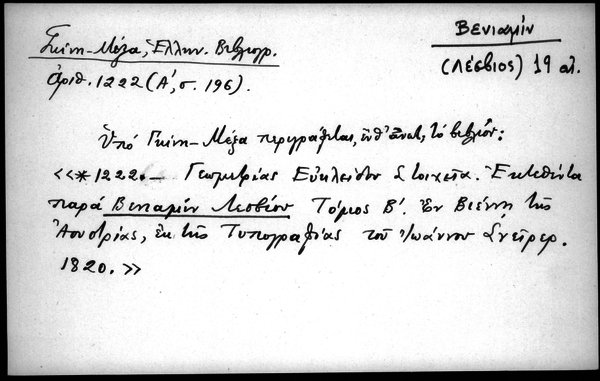 Γκίνη-Μέξα, Ἑλλην. Βιβλιογρ.
ἀριθ. 1222 (Α', σ. 196).
Βενιαμίν
(Λέσβιος) 19 αἰ.
Ὑπό Γκίνη-Μέξα περιγράφεται, ἔνθ' ἄνωτ., τό βιβλίον:
<<*1222.— Γεωμετρίας Εὐκλείδου Στοιχεῖα. Ἐκτεθέντα
παρά Βενιαμίν Λεσβίου Τόμος Β'. Ἐν Βιέννῃ τῆς
Ἀουστρίας, ἐκ τῆς Τυπογραφίας τοῦ Ἰωάννου Σνεῖρερ.
1820.>>